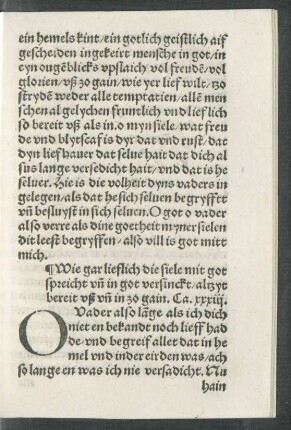 ein hemels kint/ein gotlich geistlich aif
gescheiden ingekeirt mensche in got/in
eyn ougẽblicks vpslaich/vol freudẽ/vol
glorien/vß zo gain/wie yer lief wilt/tzo
stryden weder alle temptatien/allẽ men
schen al gelychen fruntlich vnd lieflich
so bereit vß als in.o myn siele/wat freu
de vnd blytscaf is dyr dat vnd rust/dat
dyn lief hauer dat selue hait dat dich al
sus lange versedicht hait/vnd dat is he
seluer. Hie is die volheit dyns vaders in
gelegen/als dat he sich seluen begryfft
vñ besluyst in sich seluen. O got o vader
also verre als dine goetheit myner sielen
dit leest begryffen/also vill is got mitt
mich.
¶Wie gar lieflich die siele mit got
spreicht vñ in got versinckt/al zyt
bereit vß vñ in zo gain. Ca. xxxiij.
O Vader also lãge als ich dich
niet en bekandt noch lieff had
de/vnd begreif allet dat in he
mel vnd inder eirden was/ach
so lange en was ich nie versadicht. Nu
hain